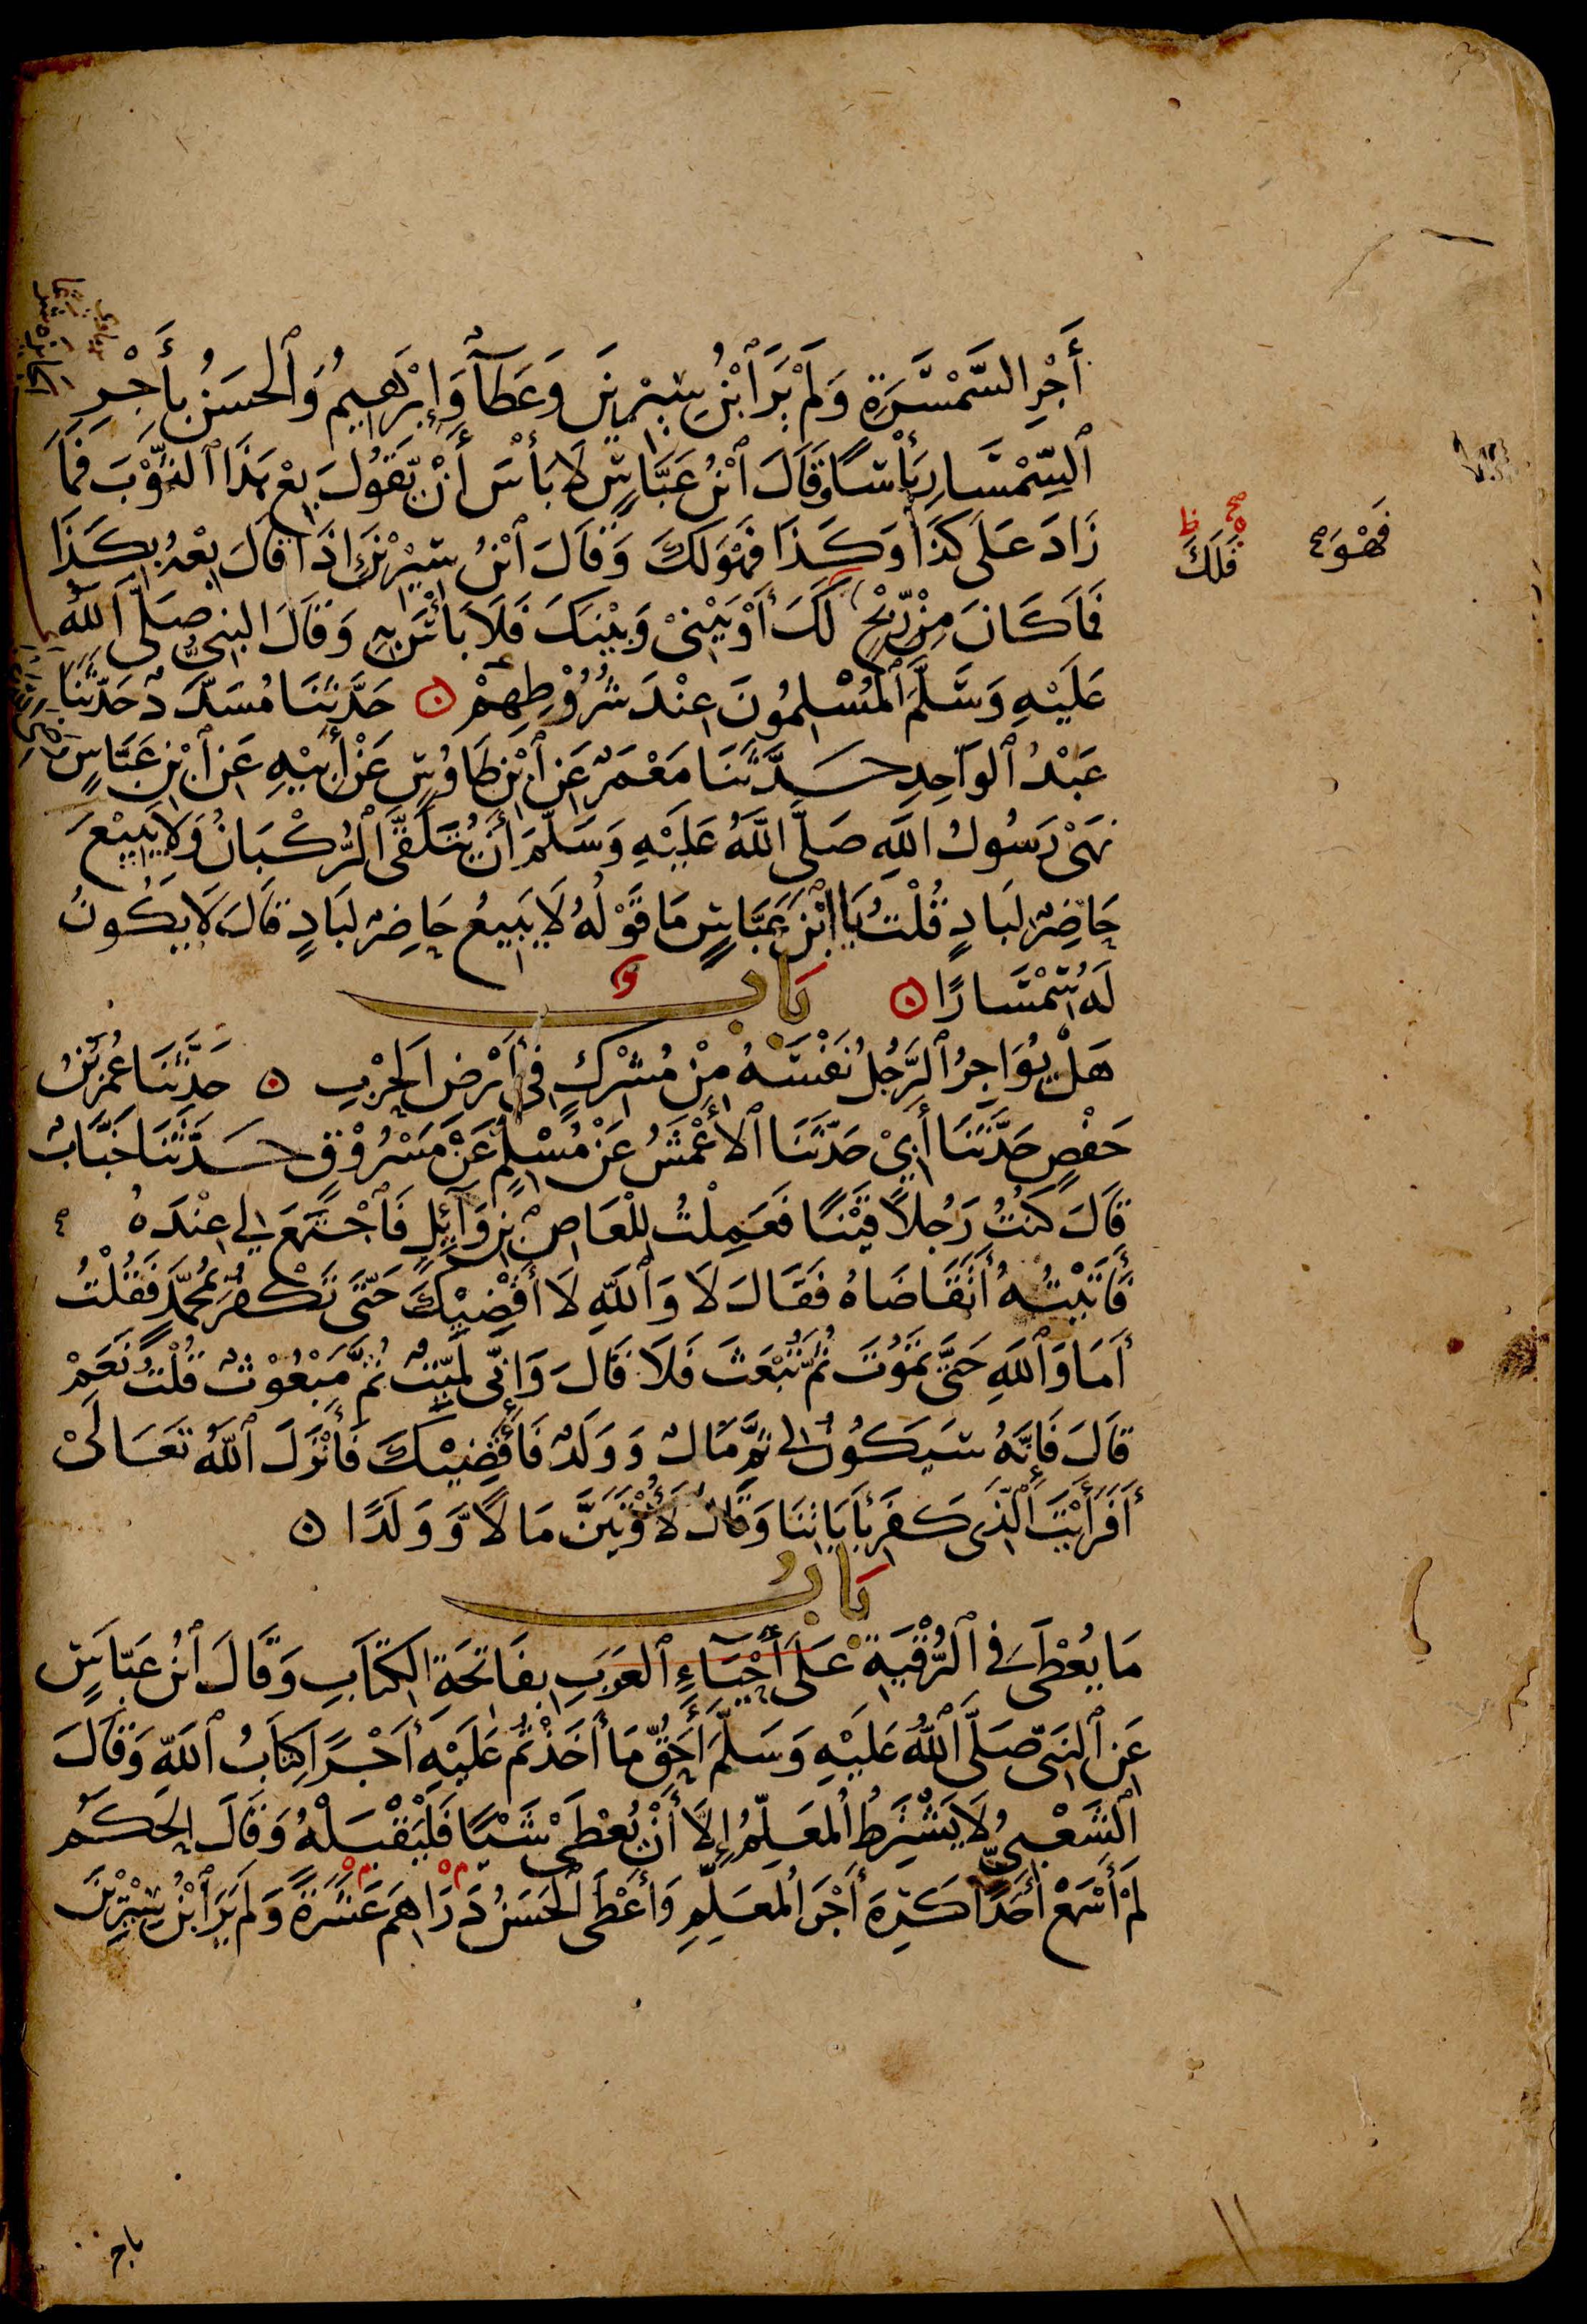 أَجْرِ السَّمْسَرَةِ وَلَمْ يَرَ ٱبْنُ سِيْرِيْنَ وَعَطَآءٌ وَإِبْرَٰهِيمُ وَٱلْحَسَنُ بِأَجْرِ
ٱلسِّمْسَارِ بَأْسًا وَقَالَ ٱبْنُ عَبَّاسٍ لَا بَأْسَ أَنْ يَّقُولَ بِعْ هَذَا ٱلثَّوْبَ فَمَا
زَادَ عَلَى كَذَا وَكَذَا فَهْوَ لَكَ وَقَالَ ٱبْنُ سِيْرِيْنَ إِذَا قَالَ بِعْهُ بِكَذَا
فَمَا كَانَ مِنْ رِّبْحٍ لَكَ أَوْ بَيْنِيْ وَبَيْنَكَ فَلَا بَأْسَ بِهِ وَقَالَ النبيُّ صَلَّى ٱللَّهُ
عَلَيْهِ وَسَلَّمَ ٱلْمُسْلِمُونَ عِنْدَ شُرُوْطِهِمْ ۝ حَدَّثَنَا مُسَدَّدٌ حَدَّثَنَا
عَبْدُ ٱلْوَاحِدِ حَدَّثَنَا مَعْمَرٌ عَنِ ٱبْنِ طَاوُسٍ عَنْ أَبِيْهِ عَنِ ٱبْنِ عَبَّاسٍ
نَهَى رَسُولُ اللَّهِ صَلَّى اللَّهُ عَلَيْهِ وَسَلَّمَ أَنْ يُتَلَقَّى ٱلرُّكْبَانُ وَلَا يَبِيْعَ
حَاضِرٌ لِبَادٍ قُلْتُ يَا ابْنَ عَبَّاسٍ مَا قَوْلُهُ لَا يَبِيعُ حَاضِرٌ لِبَادٍ قَالَ لَا يَكُونُ
لَهُ سِمْسَارًا ۝ بَابٌ
هَلْ يُؤَاجِرُ ٱلرَّجُلُ نَفْسَهُ مِنْ مُشْرِكٍ فِي أَرْضِ الْحَرْبِ ۝ حَدَّثَنَا عُمَرُ بْنُ
حَفْصٍ حَدَّثَنَا أَبِيْ حَدَّثَنَا ٱلْأَعْمَشُ عَنْ مُسْلِمٍ عَنْ مَسْرُوْقٍ حَدَّثَنَا خَبَّابٌ
قَالَ كُنْتُ رَجُلًا قَيْنًا فَعَمِلْتُ لِلْعَاصِ بْنِ وَآئِلٍ فَٱجْتَمَعَ لِي عِنْدَهُ
فَأَتَيْتُهُ أَتَقَاضَاهُ فَقَالَ لَا وَٱللَّهِ لَا أَقْضِيْكَ حَتَّى تَكْفُرَ بِمُحَمَّدٍ فَقُلْتُ
أَمَا وَٱللَّهِ حَتَّى تَمُوْتَ ثُمَّ تُبْعَثَ فَلَا قَالَ وَإِنِّي لَمَيِّتٌ ثُمَّ مَبْعُوْثٌ قُلْتُ نَعَمْ
قَالَ فَإِنَّهُ سَيَكُوْنُ لِي ثَمَّ مَالٌ وَوَلَدٌ فَأَقْضِيْكَ فَأَنْزَلَ ٱللَّهُ تَعَالَىْ
أَفَرَأَيْتَ ٱلَّذِي كَفَرَ بِأَيَاتِنَا وَقَالَ لَأُوْتَيَنَّ مَالًا وَّوَلَدًا ۝
بَابُ
مَا يُعْطَى فِي ٱلرُّقْيَةِ عَلَى أَحْيَآءِ ٱلْعَرَبِ بِفَاتِحَةِ الْكِتَابِ وَقَالَ ٱبْنُ عَبَّاسٍ
عَنِ ٱلنَّبِيِّ صَلَّى ٱللَّهُ عَلَيْهِ وَسَلَّمَ أَحَقُّ مَا أَخَذْتُمْ عَلَيْهِ أَجْرًا كِتَابُ ٱللَّهِ وَقَالَ
ٱلشَّعْبِيُّ لَا يَشْتَرِطُ ٱلْمُعَلِّمُ إِلَّا أَنْ يُعْطَىْ شَيْئًا فَلْيَقْبَلْهُ وَقَالَ الْحَكَمُ
لَمْ أَسْمَعْ أَحَدًا كَرِهَ أَجْرَ الْمُعَلِّمِ وَأَعْطَى ٱلْحَسَنُ دَرَاهِمَ عَشَرَةً وَلَمْ يَرَ ٱبْنُ سِيْرِيْنَ
فَهْوَ
فَلَكَ